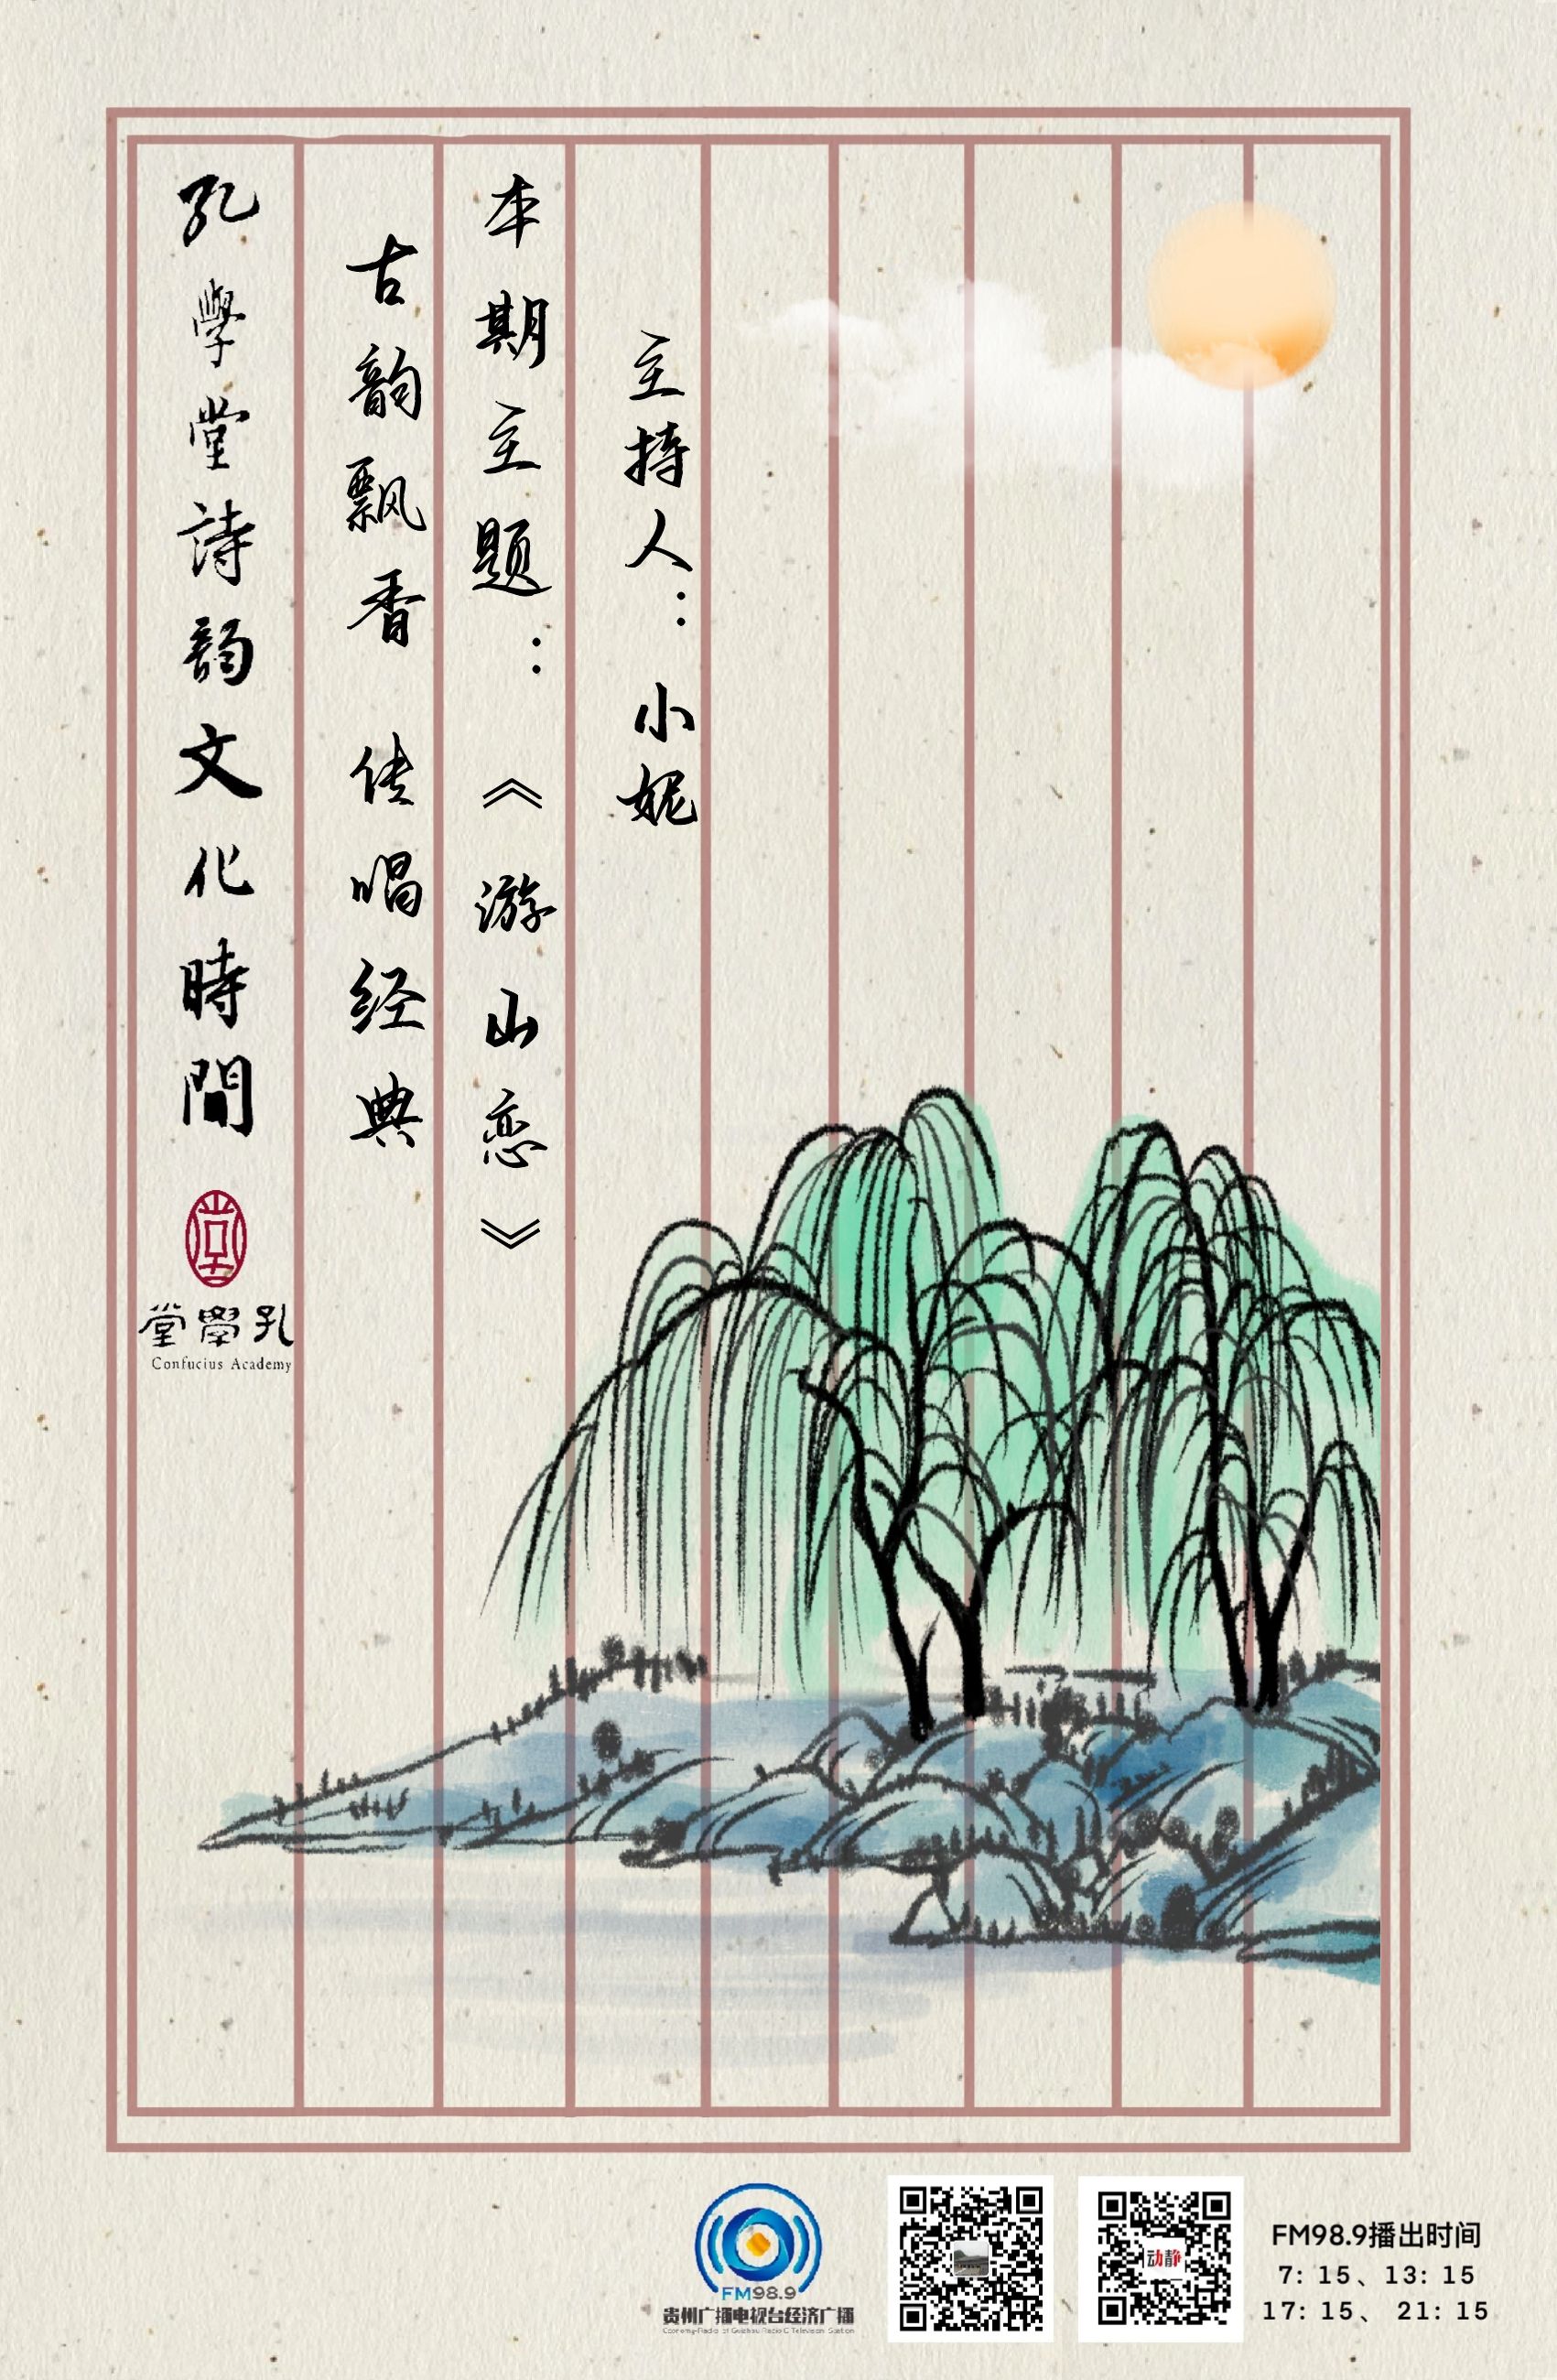 孔學堂詩韵文化時間
堂學孔
Confucius Academy
古韵飘香 传唱经典
本期主题：《游山恋》
主持人：小妮
FM98.9
贵州广播电视台经济广播
动静
FM98.9播出时间
7: 15、13: 15
17: 15、 21: 15